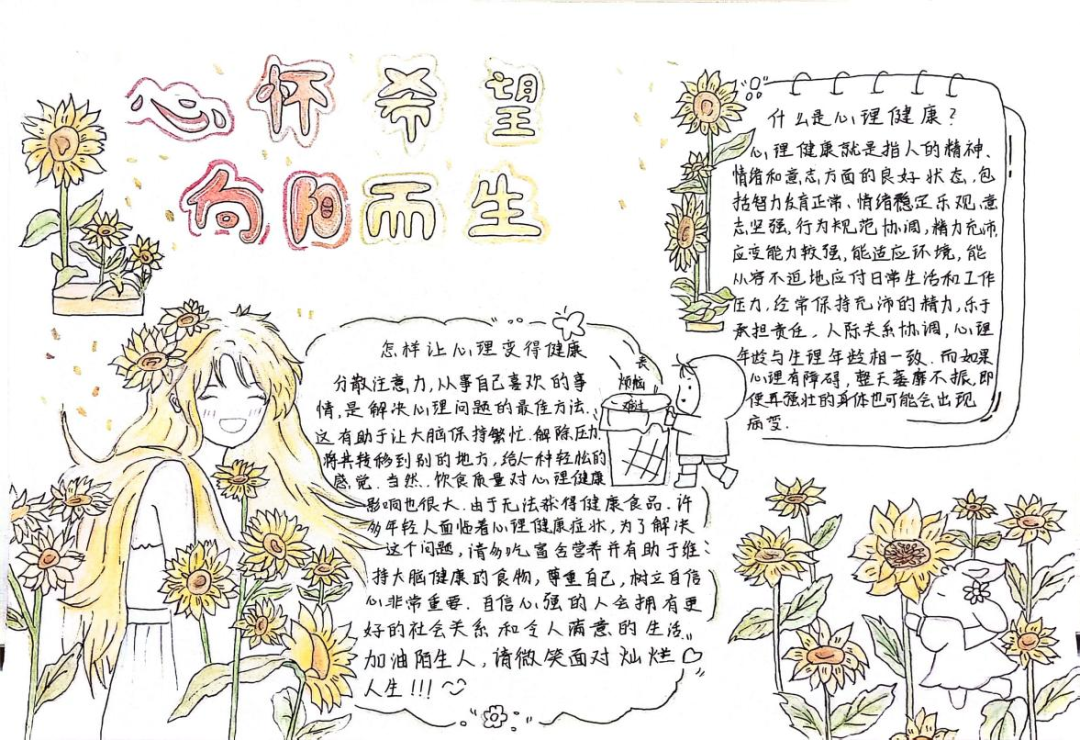 心怀希望
向阳而生
什么是心理健康?
心理健康就是指人的精神、
情绪和意志方面的良好状态,包
括智力发育正常、情绪稳定乐观,意
志坚强,行为规范协调,精力充沛,
应变能力较强,能适应环境,能
从容不迫地应付日常生活和工作
压力,经常保持充沛的精力,乐于
承担责任,人际关系协调,心理
年龄与生理年龄相一致.而如果
心理有障碍,整天萎靡不振,即
使再强壮的身体也可能会出现
病变.
怎样让心理变得健康
分散注意力,从事自己喜欢的事
情,是解决心理问题的最佳方法.
这有助于让大脑保持繁忙.解除压力.
将其转移到别的地方,给人一种轻松的
感觉.当然.饮食质量对心理健康
影响也很大.由于无法获得健康食品.许
多年轻人面临着心理健康症状,为了解决
这个问题,请多吃富含营养并有助于维
持大脑健康的食物,尊重自己,树立自信
心非常重要.自信心强的人会拥有更
好的社会关系和令人满意的生活.
加油陌生人,请微笑面对灿烂
人生!!!
丢
烦恼